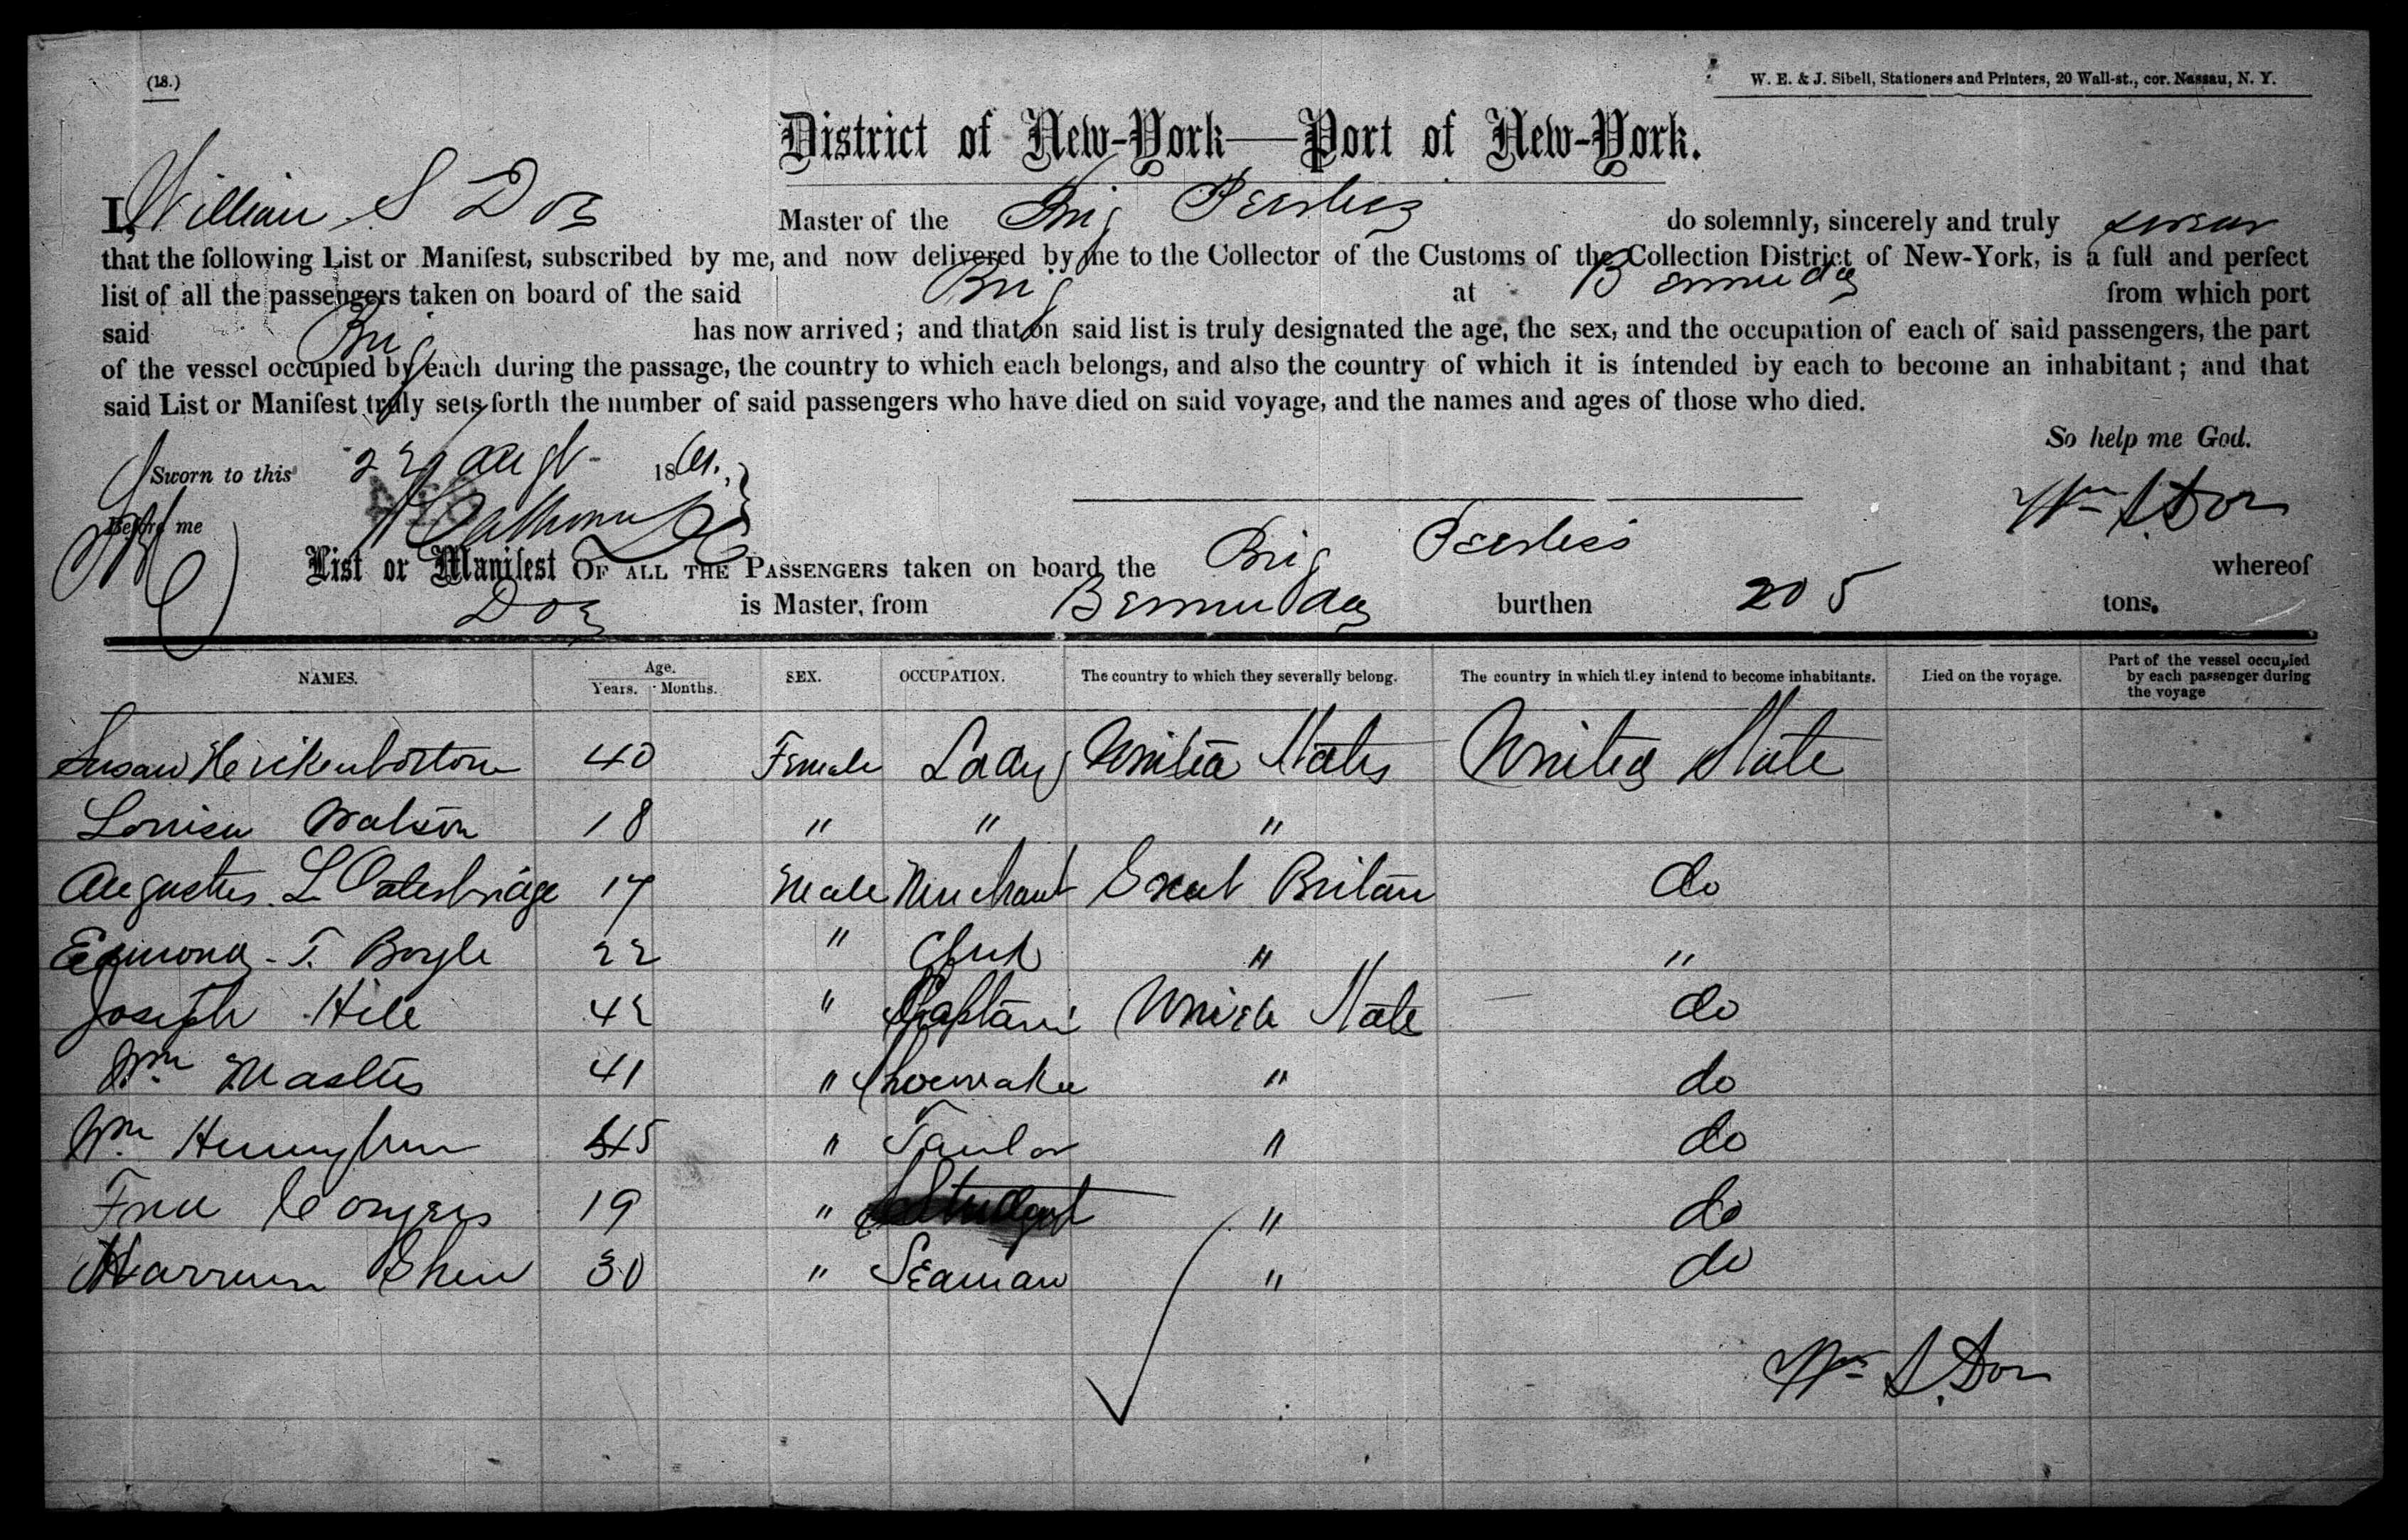 (18.)
W. E. & J. Sibell, Stationers and Printers, 20 Wall-st., cor. Nassau, N. Y.
District of New-York—Port of New-York.
I, William S Doz Master of the Brig Peerless do solemnly, sincerely and truly swear
that the following List or Manifest, subscribed by me, and now delivered by me to the Collector of the Customs of the Collection District of New-York, is a full and perfect
list of all the passengers taken on board of the said Brig at Bermuda from which port
said Brig has now arrived; and that on said list is truly designated the age, the sex, and the occupation of each of said passengers, the part
of the vessel occupied by each during the passage, the country to which each belongs, and also the country of which it is intended by each to become an inhabitant; and that
said List or Manifest truly sets forth the number of said passengers who have died on said voyage, and the names and ages of those who died.
So help me God.
Sworn to this 22 Augt 1861.
Before me
Wm S
List or Manifest OF ALL THE PASSENGERS taken on board the Brig Peerless whereof
Doz is Master, from Bermuda burthen 205 tons.
NAMES. Age. Years. Months. SEX. OCCUPATION. The country to which they severally belong. The country in which they intend to become inhabitants. Died on the voyage. Part of the vessel occupied by each passenger during the voyage
Susan 40 Female Lady United States United State
Louisa Watson 18 " " "
Augustus L Outerbridge 17 Male Merchant Great Britain do
Edmond T. Boyle 22 " Clerk " "
Joseph Hill 42 " Captain United State do
Wm Masters 41 " Shoemaker " do
Wm 45 " Tailor " do
Fred Conyers 19 " Student " do
30 " Seaman " do
Wm S.